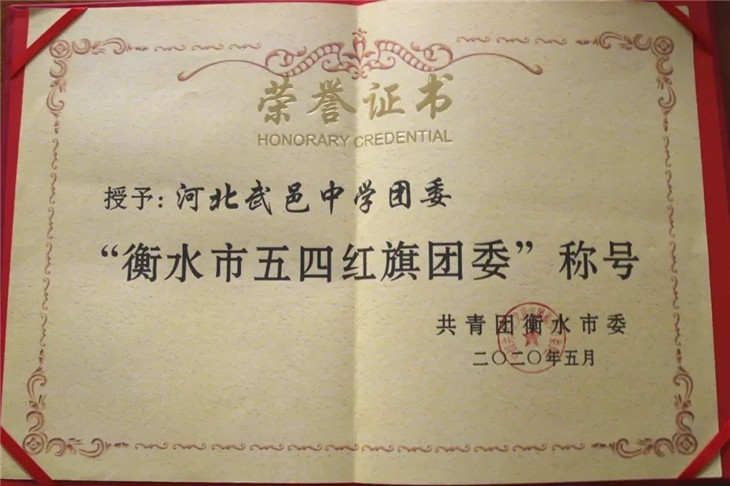 荣誉证书
HONORARY CREDENTIAL
授予：河北武邑中学团委
“衡水市五四红旗团委”称号
共青团衡水市委
二〇二〇年五月